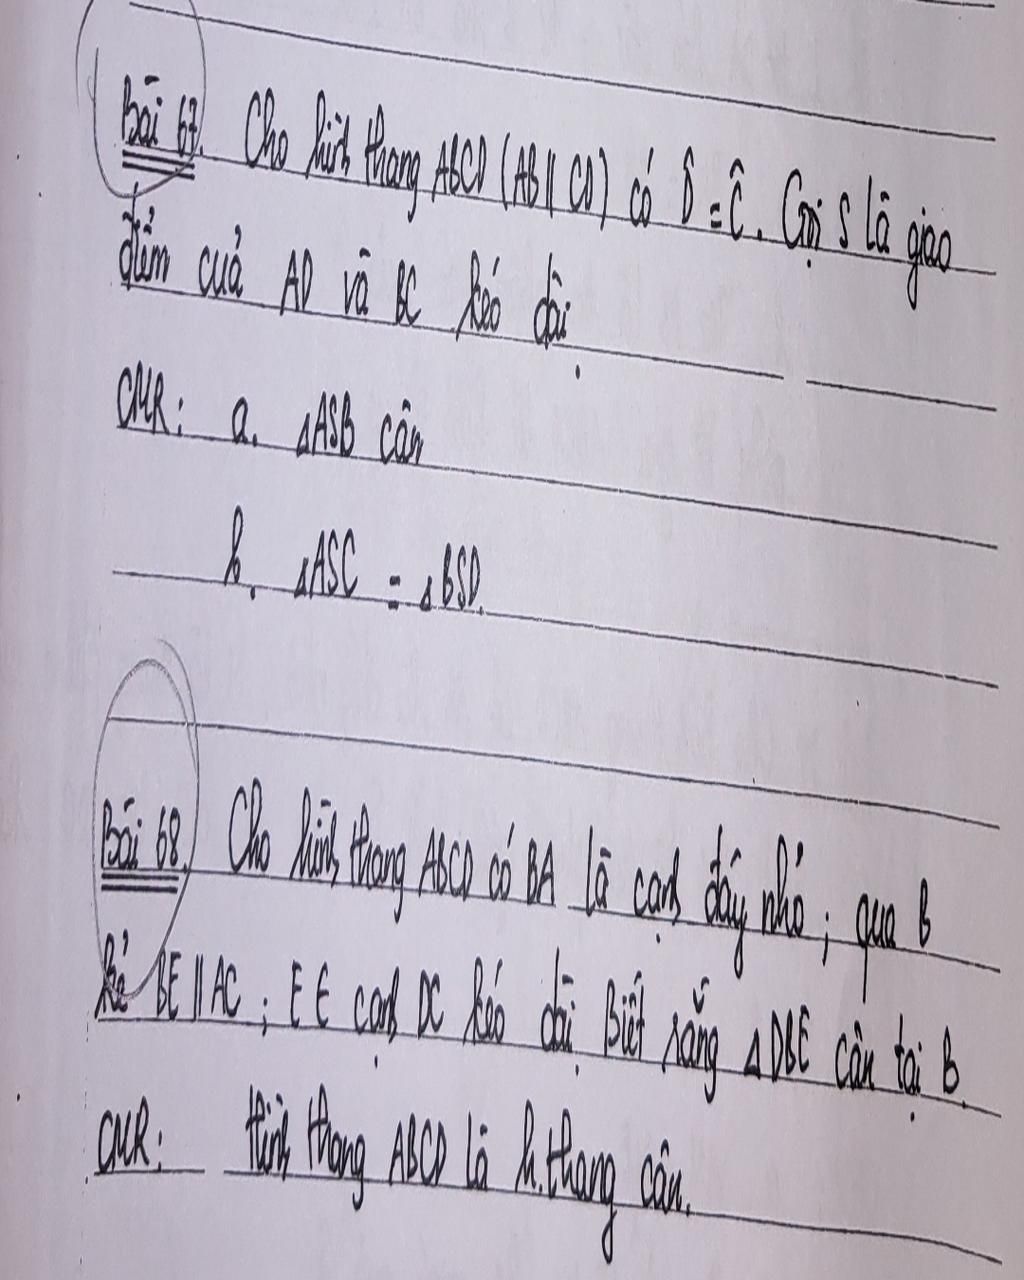 Bài 67. Cho hình thang ABCD (AB // CD) có D̂ = Ĉ. Gọi S là giao
điểm của AD và BC kéo dài.
CMR: a. ΔASB cân
b. ΔASC = ΔBSD.
Bài 68. Cho hình thang ABCD có BA là cạnh đáy nhỏ; qua B
kẻ BE // AC; E ∈ cạnh DC kéo dài. Biết rằng ΔDBE cân tại B.
CMR: Hình thang ABCD là h.thang cân.